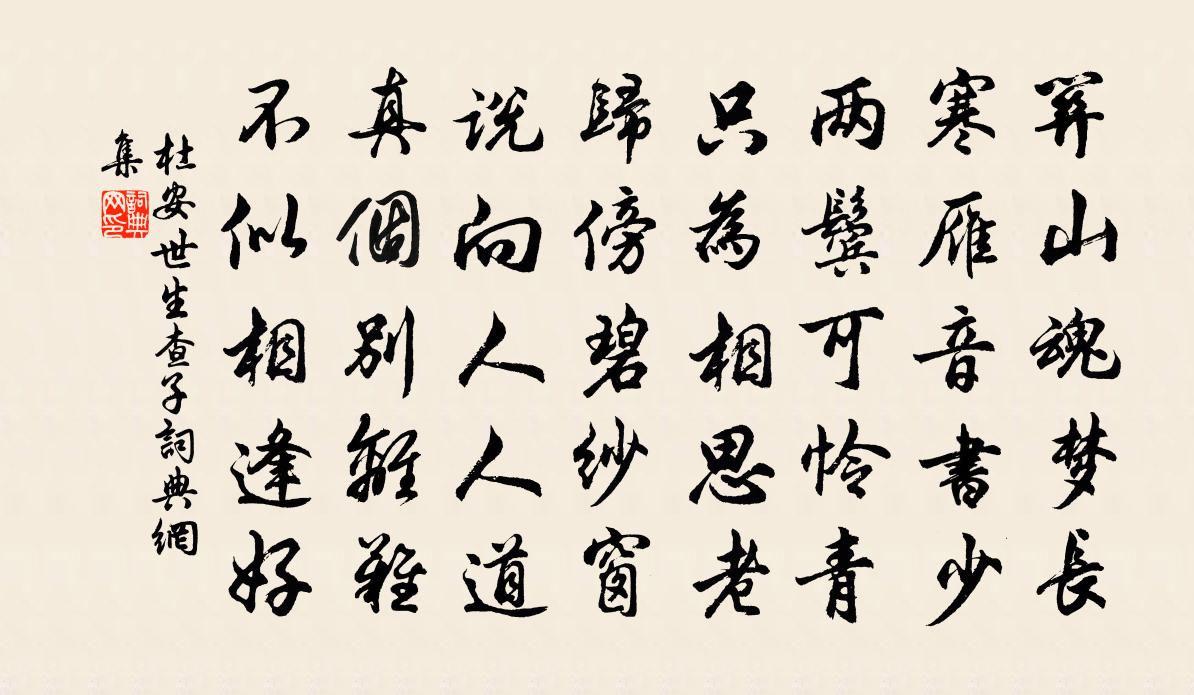 關山魂梦長
寒雁音書少
两鬢可怜青
只為相思老
歸傍碧纱窗
説向人人道
真個别離難
不似相逢好
杜安世生查子詞典網
集
詞典網印